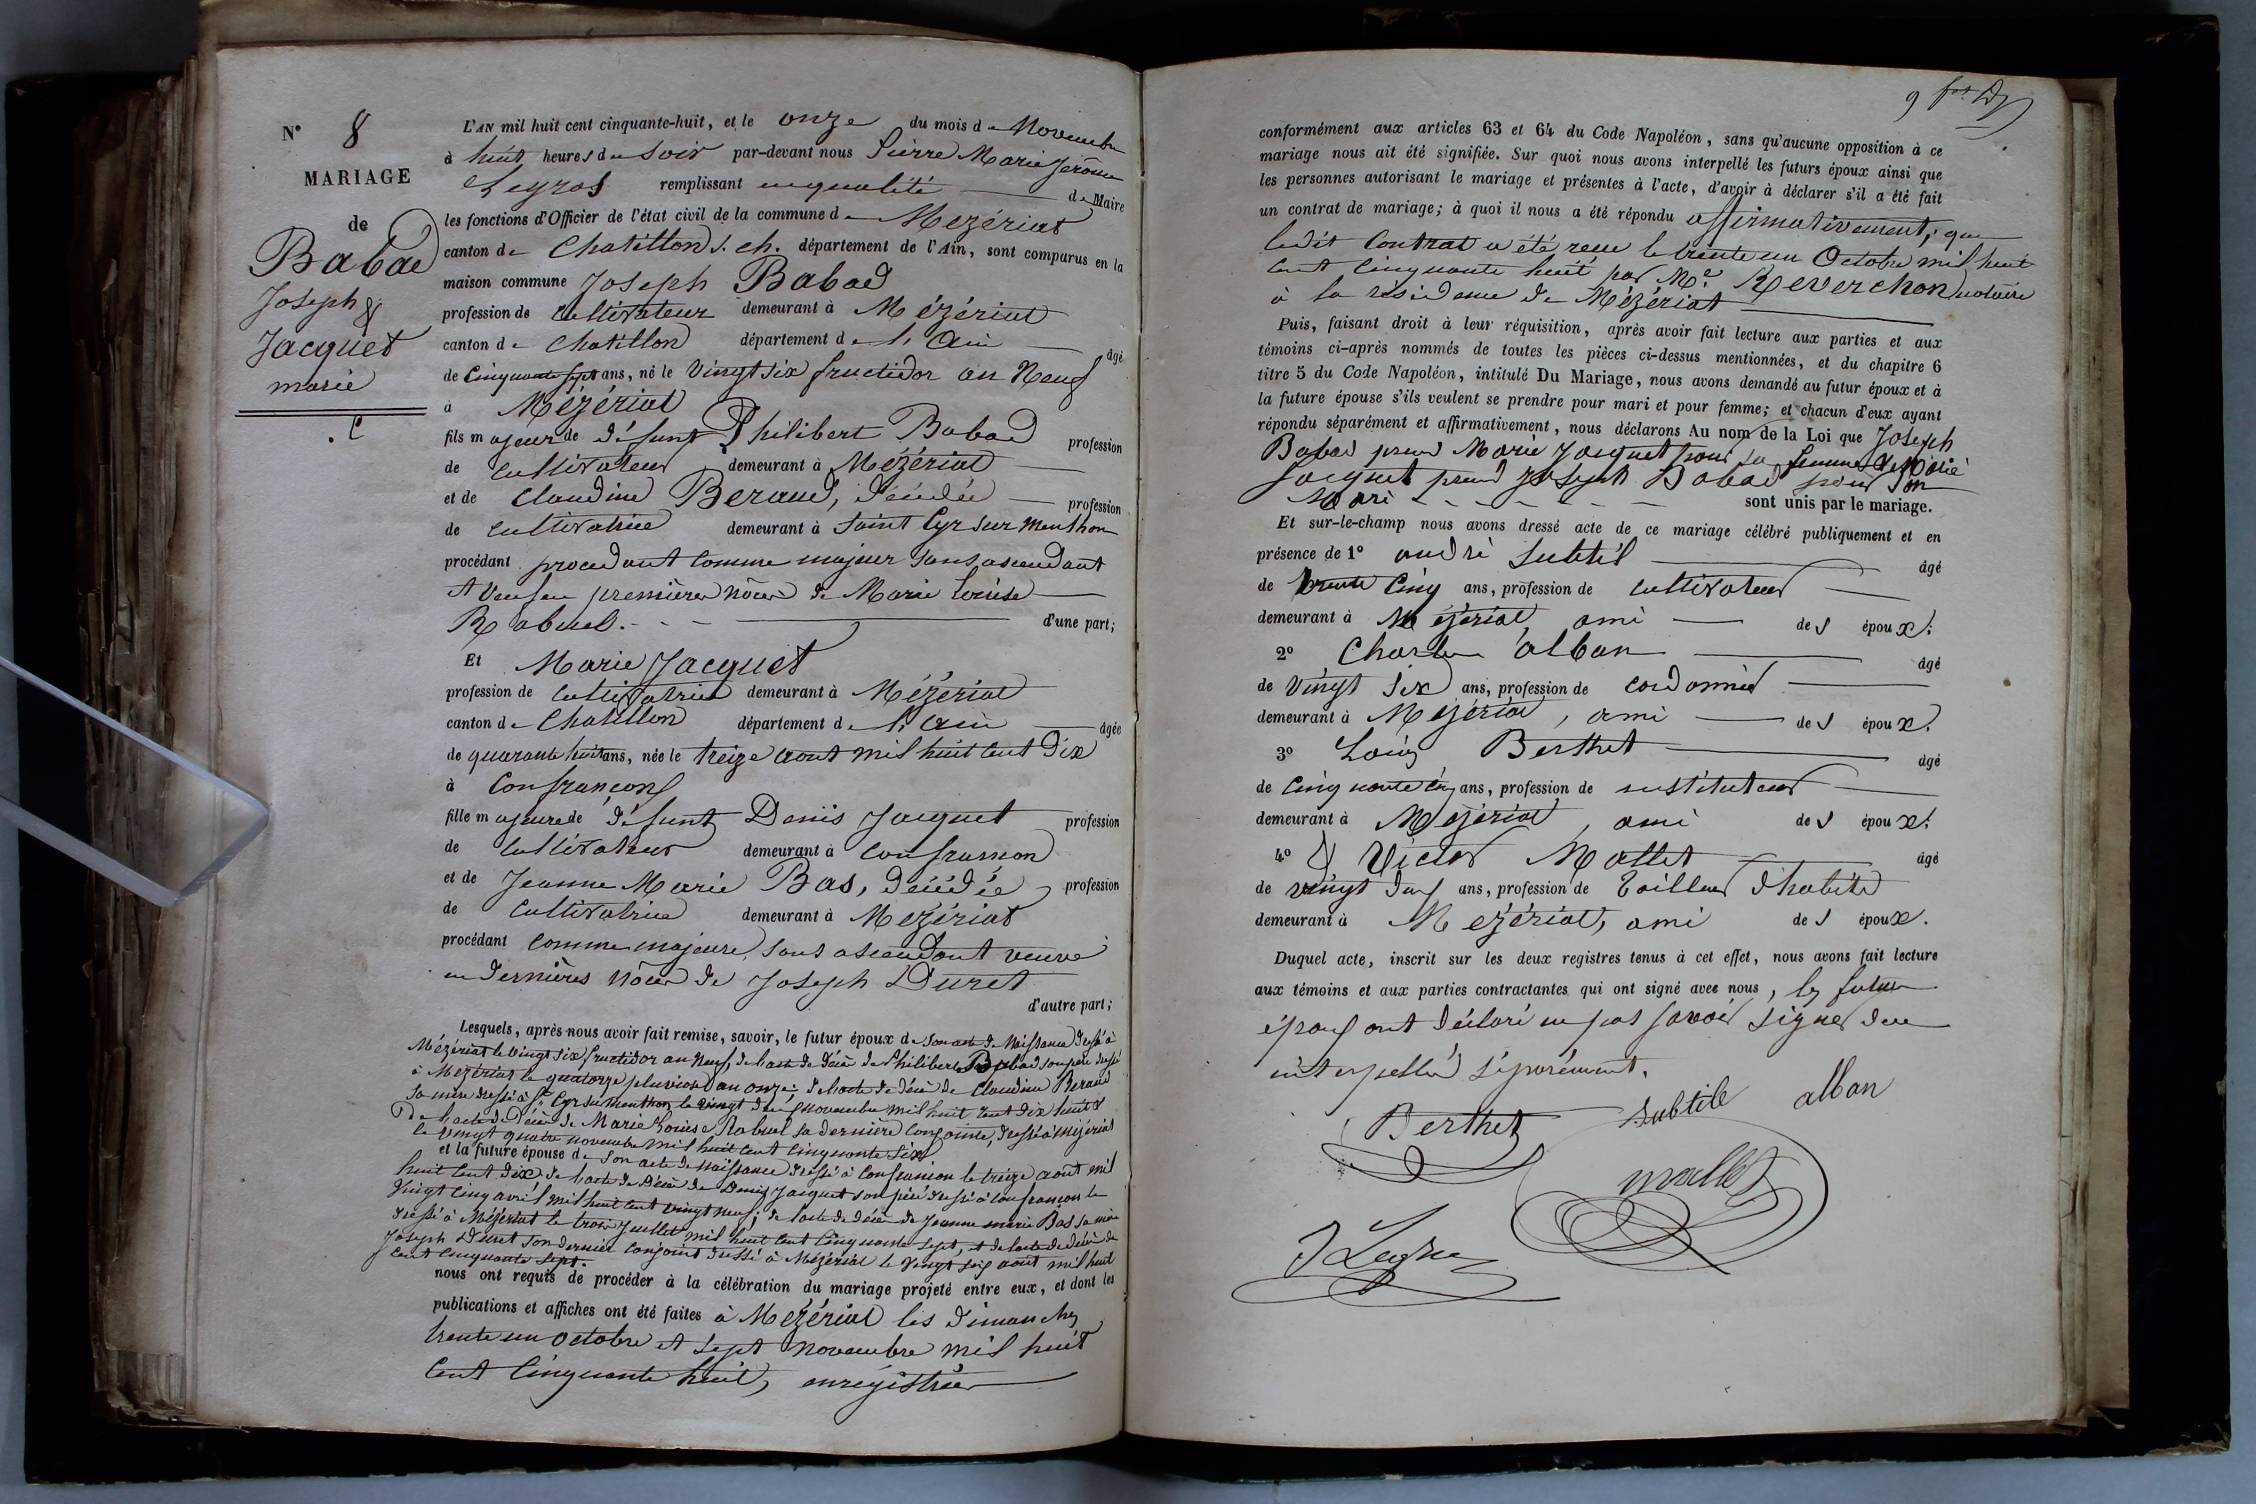 N° 8
MARIAGE
de
Babad
Joseph &
Jacquet
marie
L'AN mil huit cent cinquante-huit, et le onze du mois de Novembre
à huit heures du Soir par-devant nous Pierre Marie Jérôme
remplissant en qualité de Maire
les fonctions d'Officier de l'état civil de la commune de Mézériat
canton de Chatillon s. ch. département de l'Ain, sont comparus en la
maison commune Joseph Babad
profession de cultivateur demeurant à Mézériat
canton de Chatillon département de l'Ain âgé
de Cinquante sept ans, né le Vingt six fructidor an Neuf
à Mézériat
fils majeur de défunt Philibert Babad profession
de cultivateur demeurant à Mézériat
et de Claudine Beraud, décédée profession
de cultivatrice demeurant à Saint Cyr sur Menthon
procédant procedant comme majeur sans ascendant
et Veuf en premières nôces de Marie Louise
Rabuel. d'une part;
Et Marie Jacquet
profession de cultivatrice demeurant à Mézériat
canton de Chatillon département de l'Ain âgée
de quarante huit ans, née le treize aout mil huit cent dix
à Confrançon
fille majeure de défunt Denis Jacquet profession
de Cultivateur demeurant à Confrançon
et de Jeanne Marie Bas, décédée profession
de Cultivatrice demeurant à Mézériat
procédant comme majeure, sans ascendant veuve
en dernières nôces de Joseph Duret
d'autre part;
Lesquels, après nous avoir fait remise, savoir, le futur époux de son acte de Naissance dressé à
Mézériat le vingt six fructidor an Neuf, de l'acte de décès de Philibert Babad son père dressé
à Mézériat le quatorze pluviose an onze; de l'acte de décès de Claudine Beraud
sa mère dressé à St Cyr sur Menthon le vingt deux novembre mil huit cent dix huit &
de l'acte de Décès de Marie Louise Rabuel sa dernière conjointe, dressé à Mézériat
le vingt quatre novembre mil huit cent cinquante six
et la future épouse de son acte de naissance dressé à Confrançon le treize aout mil
huit cent dix, de l'acte de Décès de Denis Jacquet son père dressé à Confrançon le
Vingt cinq avril mil huit cent vingt neuf; de l'acte de décès de Jeanne marie Bas sa mère
dressé à Mézériat le trois Juillet mil huit cent cinquante sept, et de l'acte de décès de
Joseph Duret son dernier conjoint dressé à Mézériat le vingt six aout mil huit
cent cinquante sept.
nous ont requis de procéder à la célébration du mariage projeté entre eux, et dont les
publications et affiches ont été faites à Mézériat les dimanches
trente un octobre et sept novembre mil huit
cent Cinquante huit, enregistrées
conformément aux articles 63 et 64 du Code Napoléon, sans qu'aucune opposition à ce
mariage nous ait été signifiée. Sur quoi nous avons interpellé les futurs époux ainsi que
les personnes autorisant le mariage et présentes à l'acte, d'avoir à déclarer s'il a été fait
un contrat de mariage; à quoi il nous a été répondu affirmativement; que
ledit Contrat a été recu le trente un Octobre mil huit
cent cinquante huit par Me. Reverchon notaire
à la résidence de Mézériat
Puis, faisant droit à leur réquisition, après avoir fait lecture aux parties et aux
témoins ci-après nommés de toutes les pièces ci-dessus mentionnées, et du chapitre 6
titre 5 du Code Napoléon, intitulé Du Mariage, nous avons demandé au futur époux et à
la future épouse s'ils veulent se prendre pour mari et pour femme; et chacun d'eux ayant
répondu séparément et affirmativement, nous déclarons Au nom de la Loi que Joseph
Babad prend Marie Jacquet pour sa femme & Marie
Jacquet prend Joseph Babad pour son
Mari sont unis par le mariage.
Et sur-le-champ nous avons dressé acte de ce mariage célébré publiquement et en
présence de 1° andré Subtil âgé
de trente Cinq ans, profession de cultivateur
demeurant à Mézériat, ami des époux;
2° Charles alban âgé
de vingt Six ans, profession de cordonnier
demeurant à Mézériat, ami des époux.
3° Louis Berthet âgé
de Cinquante cinq ans, profession de instituteur
demeurant à Mézériat, ami des époux.
4° & Victor Mallet âgé
de vingt deux ans, profession de tailleur d'habits
demeurant à Mézériat, ami des époux.
Duquel acte, inscrit sur les deux registres tenus à cet effet, nous avons fait lecture
aux témoins et aux parties contractantes qui ont signé avec nous, les futurs
époux ont déclaré ne pas savoir signer de ce
interpellés séparément.
Berthet subtile alban
mallet